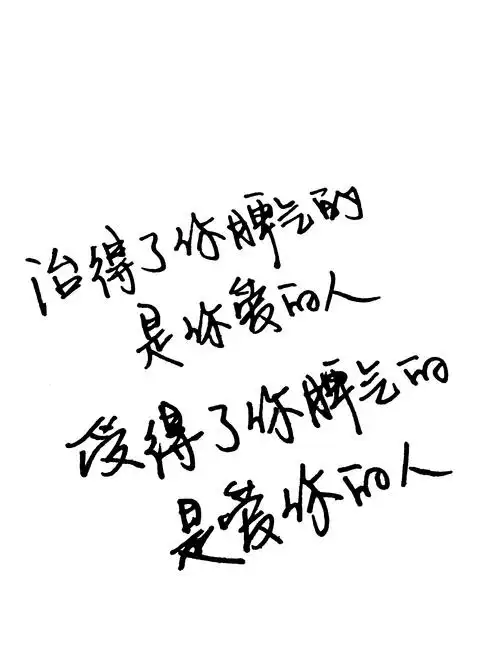 治得了你脾气的
是你爱的人
受得了你脾气的
是爱你的人